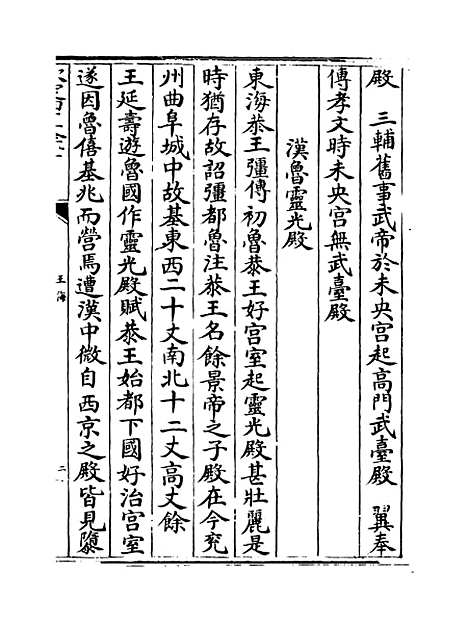 殿　三輔舊事武帝於未央宮起高門武臺殿　翼奉
傳孝文時未央宮無武臺殿
漢魯靈光殿
東海恭王彊傳初魯恭王好宮室起靈光殿甚壯麗是
時猶存故詔彊都魯注恭王名餘景帝之子殿在今兖
州曲阜城中故基東西二十丈南北十二丈高丈餘
王延壽遊魯國作靈光殿賦恭王始都下國好治宮室
遂因魯僖基兆而營焉遭漢中微自西京之殿皆見隳
玉海
二